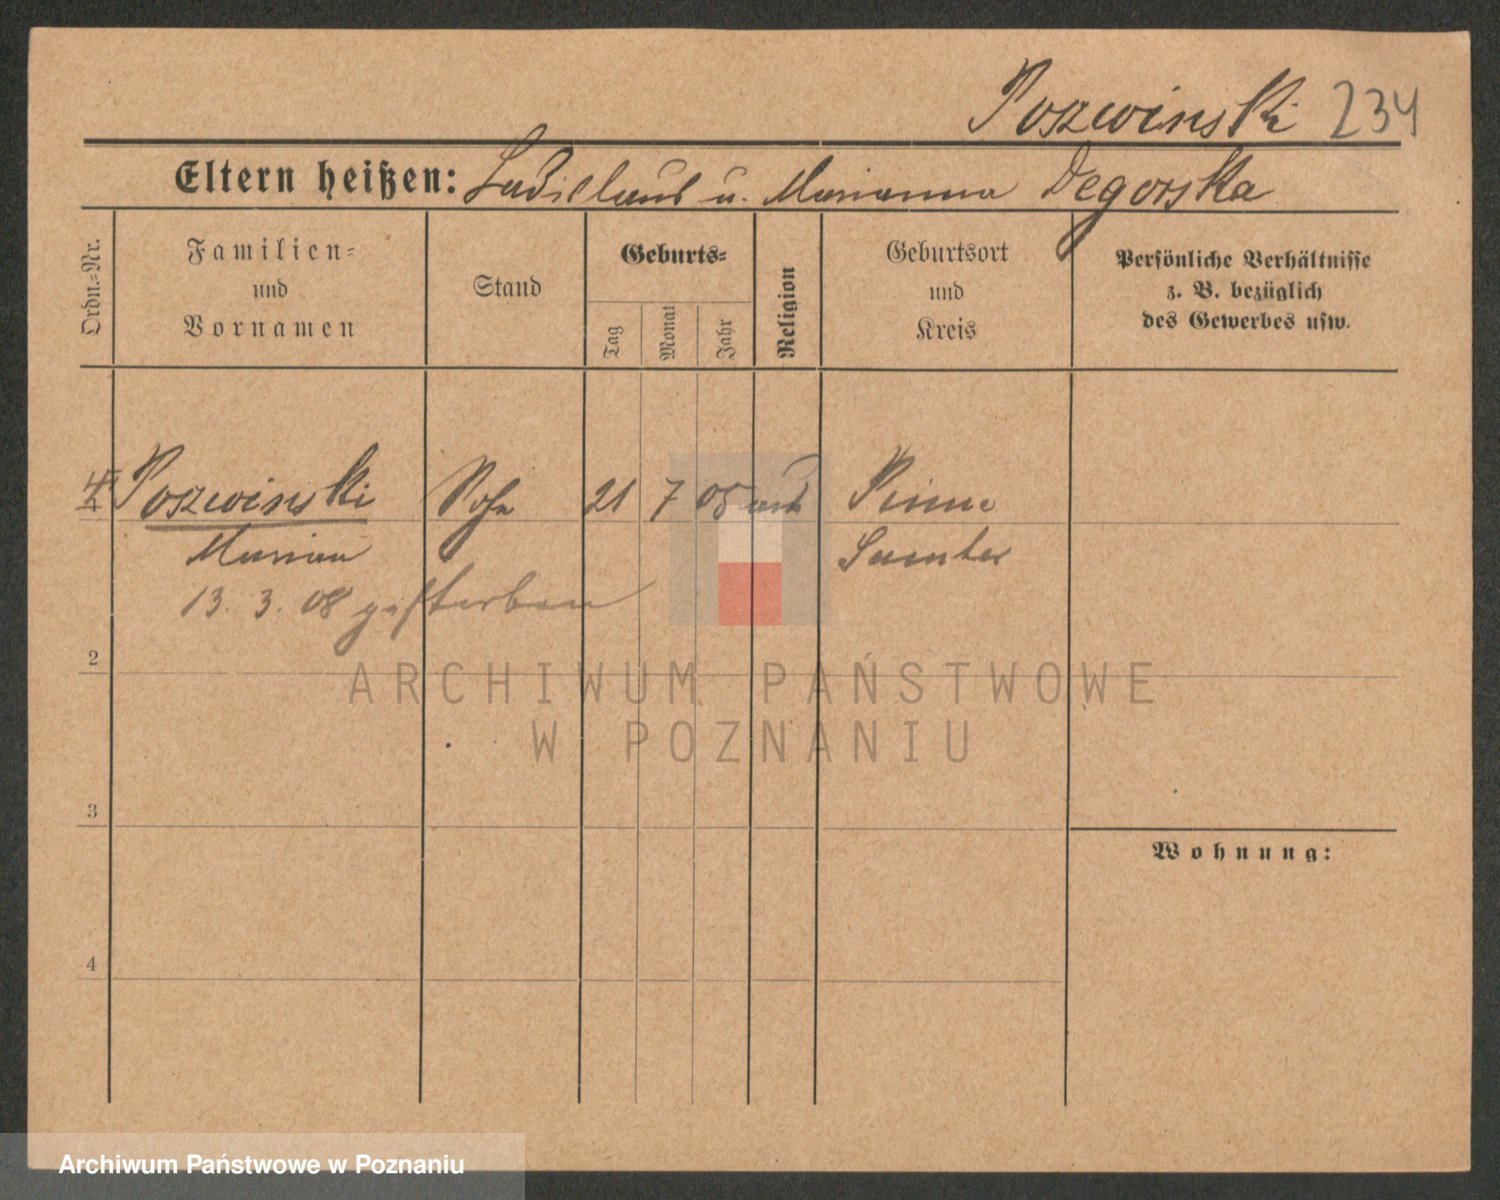 Poszwinski 234
Eltern heißen: Ladislaus u. Marianna Degorska
Ordn.=Nr.
Familien=
und
Vornamen
Stand
Geburts=
Tag
Monat
Jahr
Religion
Geburtsort
und
Kreis
Persönliche Verhältnisse
z. B. bezüglich
des Gewerbes usw.
Poszwinski Sohn 21 7 05 Pinne
Marian Samter
13. 3. 08 gestorben
2
3
4
Wohnung:
ARCHIWUM PAŃSTWOWE
W POZNANIU
Archiwum Państwowe w Poznaniu